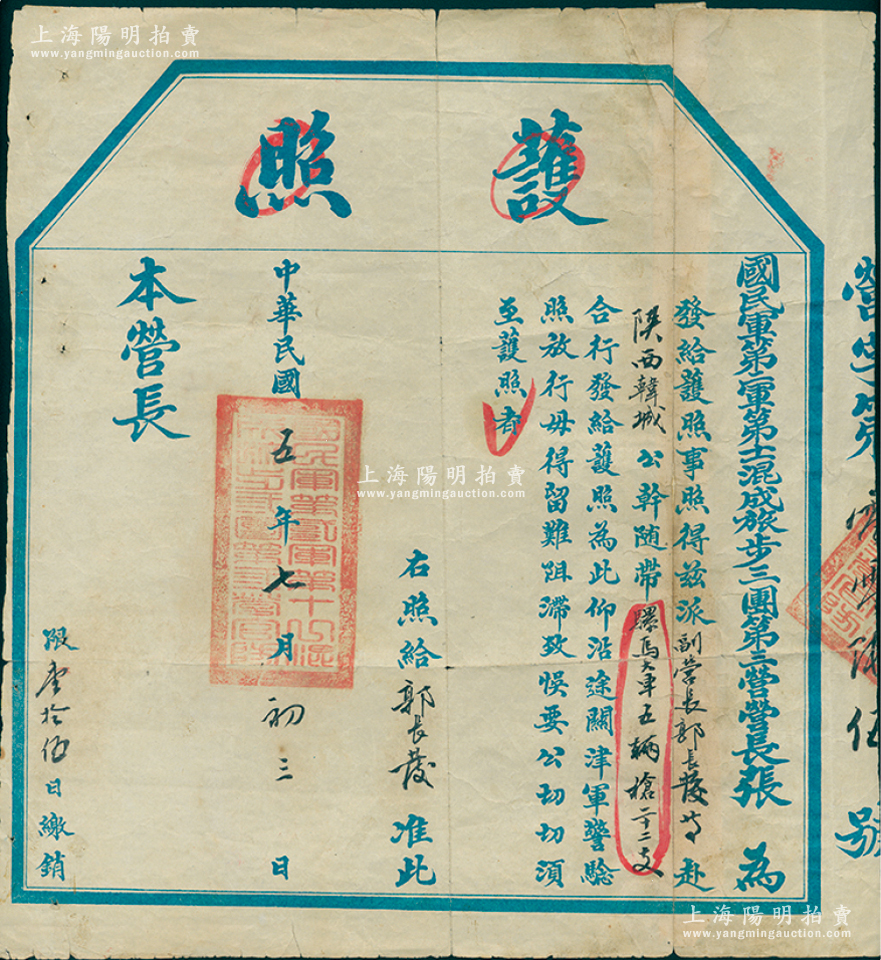 上海陽明拍賣
www.yangmingauction.com
上海陽明拍賣
www.yangmingauction.com
上海陽明拍賣
www.yangmingauction.com
護照
營字第 伍 號
國民軍第二軍第十一混成旅步三團第三營營長張 為
發給護照事照得兹派副營長郭長發等赴
陝西韓城公幹随帶騾馬大車五輛槍二十二支
合行發給護照為此仰沿途關津軍警驗
照放行毋得留難阻滯致悞要公切切須
至護照者
右照給郭長發准此
中華民國五年七月初三日
本營長
限壹拾伍日繳銷